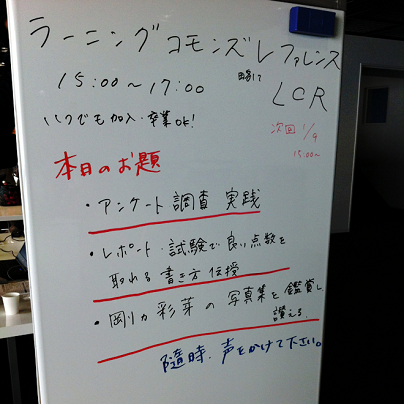 ラーニングコモンズレファレンス
15:00~17:00
略して
LCR
いつでも加入・卒業OK!
次回 1/9
15:00~
本日のお題
・アンケート調査 実践
・レポート・試験で良い点数を
取れる書き方 伝授
・剛力彩芽の写真集を鑑賞し
讃える
随時、声をかけて下さい。